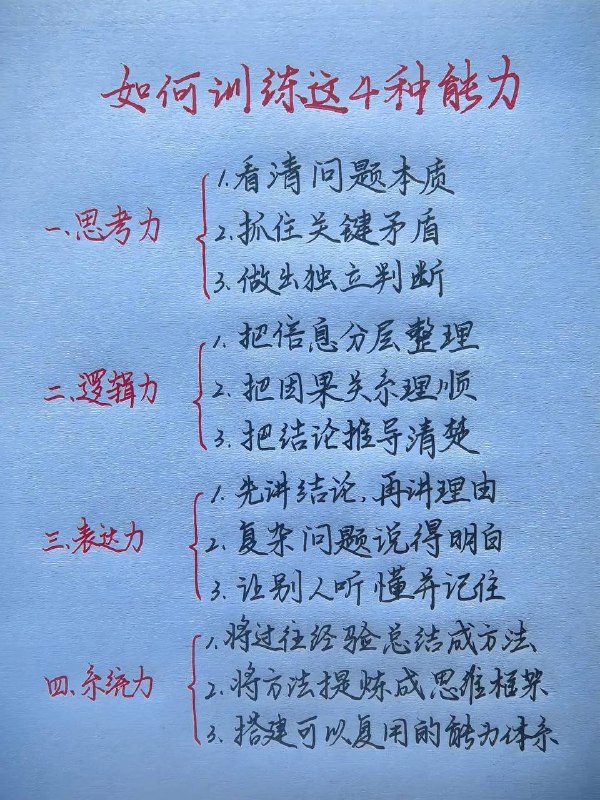 如何训练这4种能力
一、思考力
1.看清问题本质
2.抓住关键矛盾
3.做出独立判断
二、逻辑力
1.把信息分层整理
2.把因果关系理顺
3.把结论推导清楚
三、表达力
1.先讲结论,再讲理由
2.复杂问题说得明白
3.让别人听懂并记住
四、系统力
1.将过往经验总结成方法
2.将方法提炼成思维框架
3.搭建可以复用的能力体系